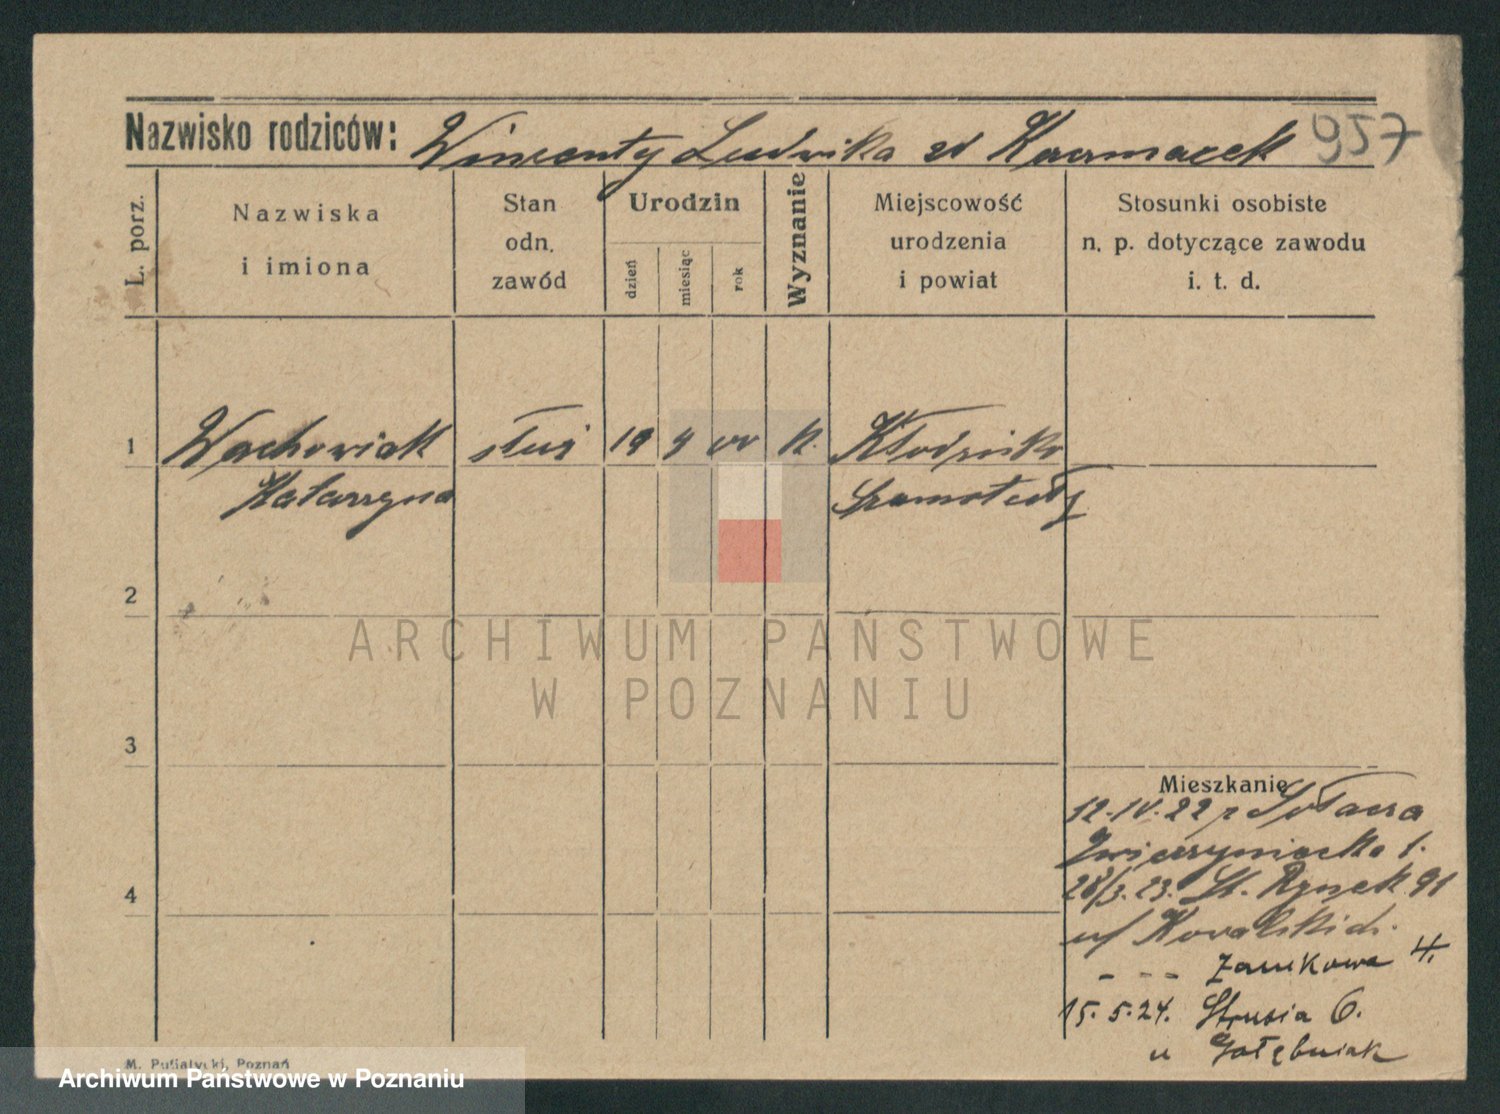 Nazwisko rodziców: Wincenty Ludwika zd Kaczmarek 957
L. porz.
Nazwiska
i imiona
Stan
odn.
zawód
Urodzin
dzień
miesiąc
rok
Wyznanie
Miejscowość
urodzenia
i powiat
Stosunki osobiste
n. p. dotyczące zawodu
i. t. d.
1 Wachowiak służ 19 4 k.
Katarzyna
2
3
4
ARCHIWUM PAŃSTWOWE
W POZNANIU
Mieszkanie
12.IV.22 z Sołacza
Zwierzyniecka 1.
28/3.23. St. Rynek 91
u/ Kowalskich.
- - - Zamkowa 4.
15.5.24. Strusia 6.
u Gołębniak
M. Putiatycki, Poznań
Archiwum Państwowe w Poznaniu